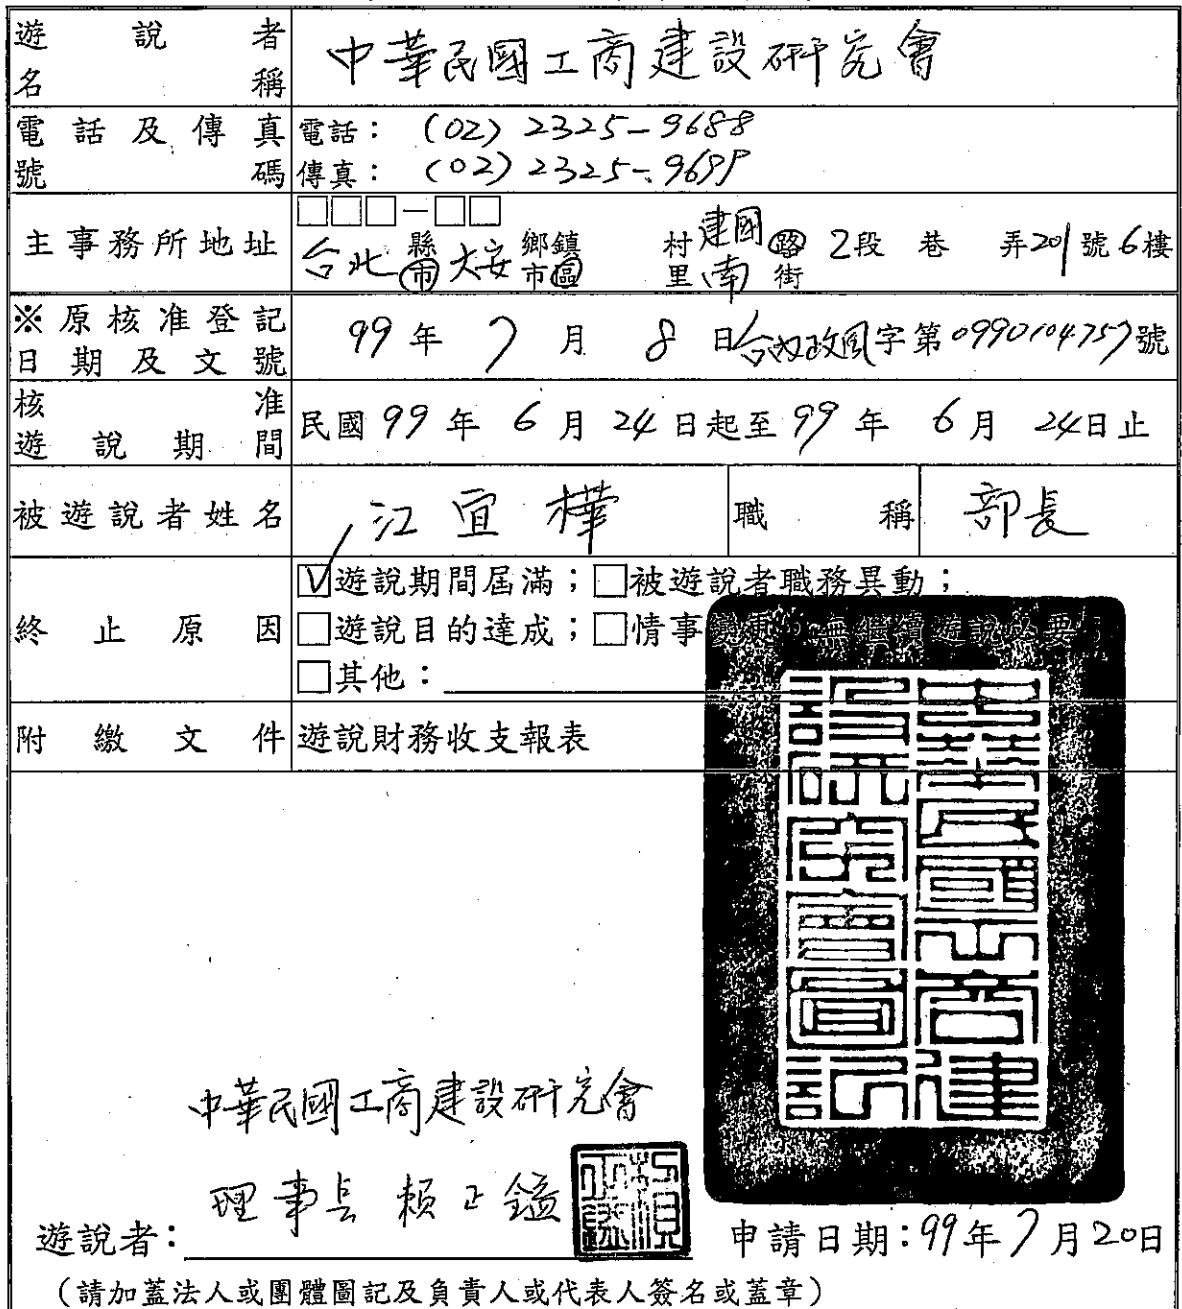 遊說者名稱 中華民國工商建設研究會
電話及傳真號碼 電話：(02) 2325-9688
傳真：(02) 2325-9699
主事務所地址 □□□－□□
台北 縣市 大安 鄉鎮市區 村里 建國南 路街 2段 巷 弄 201號 6樓
※原核准登記日期及文號 99年 7月 8日 台內政風字第0990104757號
核准遊說期間 民國99年 6月 24日起至99年 6月 24日止
被遊說者姓名 江宜樺 職稱 部長
終止原因 ☑遊說期間屆滿；□被遊說者職務異動；
□遊說目的達成；□情事變更已無繼續遊說必要；
□其他：
附繳文件 遊說財務收支報表
中華民國工商建設研究會圖記
中華民國工商建設研究會
理事長 賴正鎰
遊說者：
申請日期：99年7月20日
（請加蓋法人或團體圖記及負責人或代表人簽名或蓋章）